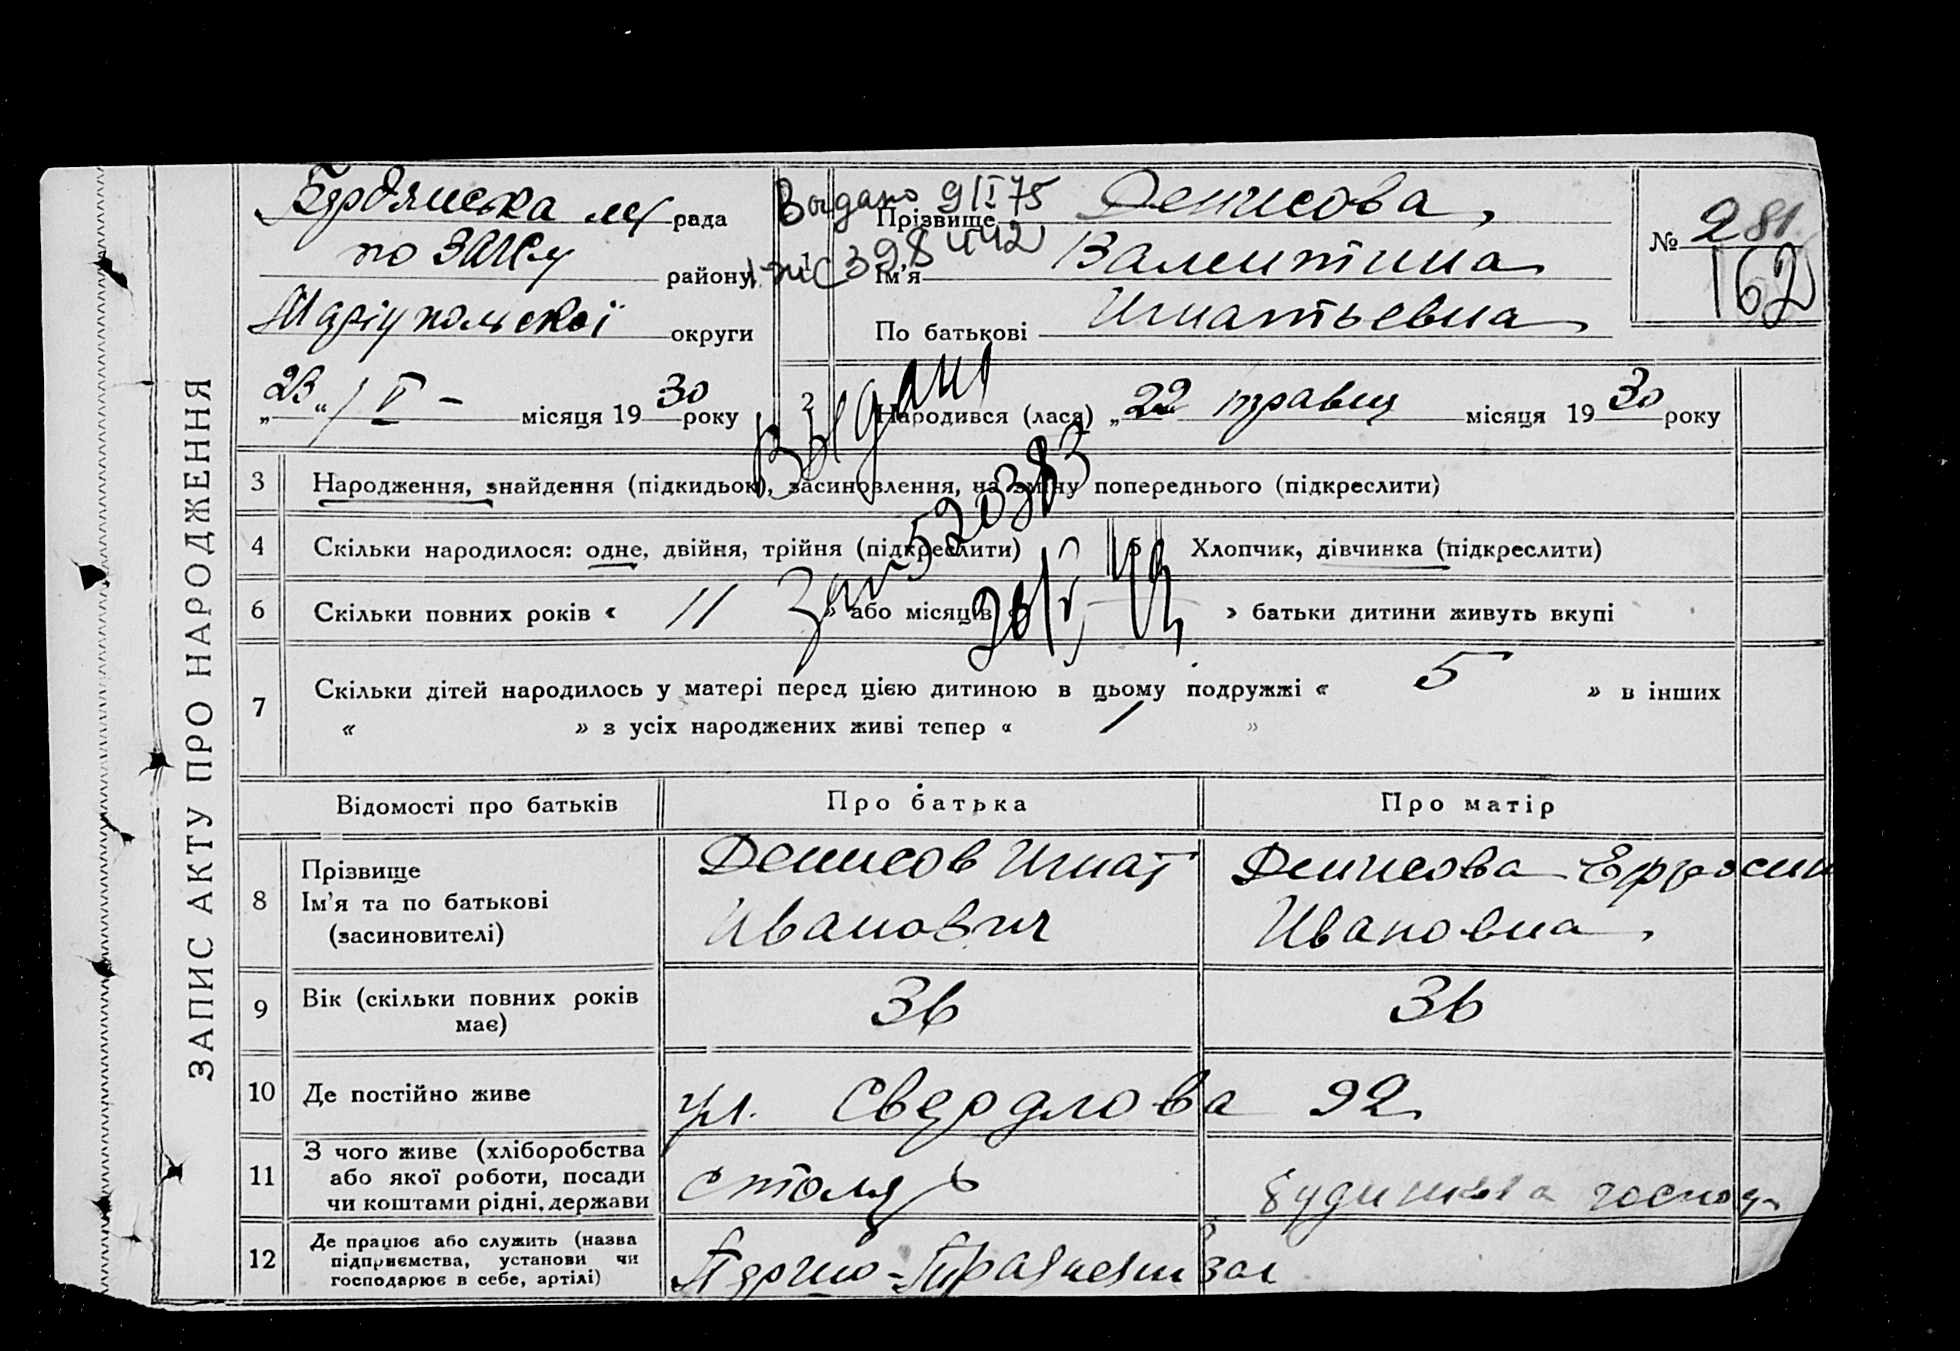 ЗАПИС АКТУ ПРО НАРОДЖЕННЯ
Бердянська рада
по ЗАГСу району
Маріупольської округи
„23“ / V - місяця 1930 року
Выдано 9/I 75
398442
1
Прізвище Денисова
Ім'я Валентина
По батькові Игнатьевна
№ 281
162
2 Народився (лася) „22 травня місяця 1930 року
Выдано
520383
3 Народження, знайдення (підкидьок), засиновлення, на зміну попереднього (підкреслити)
4 Скільки народилося: одне, двійня, трійня (підкреслити) 5 Хлопчик, дівчинка (підкреслити)
6 Скільки повних років « 11 » або місяців » батьки дитини живуть вкупі
7 Скільки дітей народилось у матері перед цією дитиною в цьому подружжі « 5 » в інших
« » з усіх народжених живі тепер « 1 »
Відомості про батьків Про батька Про матір
8 Прізвище
Ім'я та по батькові
(засиновителі)
Денисов Игнат
Иванович
Денисова Ефросин
Ивановна
9 Вік (скільки повних років
має)
36 36
10 Де постійно живе ул. Свердлова 92
11 З чого живе (хліборобства
або якої роботи, посади
чи коштами рідні, держави
столяр господ
12 Де працює або служить (назва
підприємства, установи чи
господарює в себе, артілі)
Перше-Травнев зав